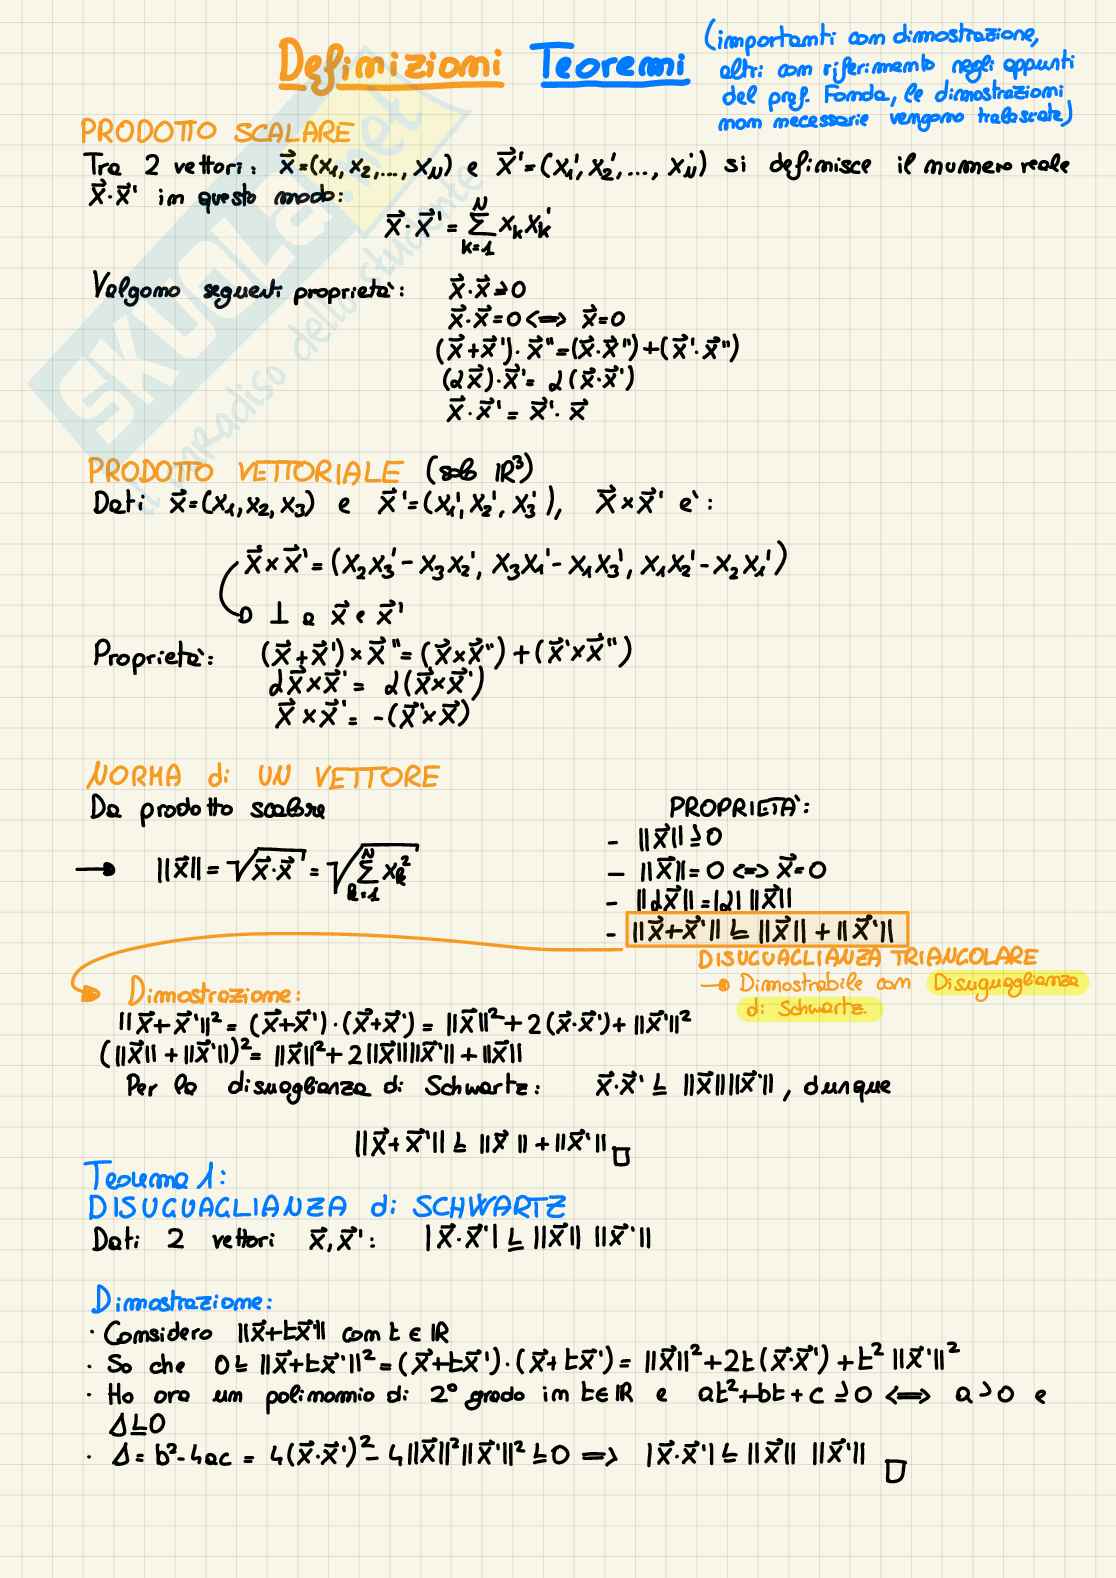 Definizioni Teoremi (importanti con dimostrazione,
altri con riferimento negli appunti
del prof. Fonda, le dimostrazioni
non necessarie vengono tralasciate)
PRODOTTO SCALARE
Tra 2 vettori: x⃗=(x₁, x₂, ..., x_N) e x⃗'=(x₁', x₂', ..., x_N') si definisce il numero reale
x⃗·x⃗' in questo modo:
x⃗·x⃗' = ∑_{k=1}^{N} x_k x_k'
Valgono seguenti proprietà: x⃗·x⃗ ≥ 0
x⃗·x⃗=0 <=> x⃗=0
(x⃗+x⃗')·x⃗''=(x⃗·x⃗'')+(x⃗'·x⃗'')
(αx⃗)·x⃗'= α(x⃗·x⃗')
x⃗·x⃗' = x⃗'·x⃗
PRODOTTO VETTORIALE (solo ℝ³)
Dati x⃗=(x₁, x₂, x₃) e x⃗'=(x₁', x₂', x₃'), x⃗×x⃗' è:
x⃗×x⃗'=(x₂x₃'-x₃x₂', x₃x₁'-x₁x₃', x₁x₂'-x₂x₁')
⊥ a x⃗ e x⃗'
Proprietà: (x⃗+x⃗')×x⃗''=(x⃗×x⃗'')+(x⃗'×x⃗'')
αx⃗×x⃗'= α(x⃗×x⃗')
x⃗×x⃗'= -(x⃗'×x⃗)
NORMA di UN VETTORE
Da prodotto scalare
→ ||x⃗||=√(x⃗·x⃗) = √(∑_{k=1}^{N} x_k²)
PROPRIETÀ:
- ||x⃗|| ≥ 0
- ||x⃗||=0 <=> x⃗=0
- ||αx⃗||=|α| ||x⃗||
- ||x⃗+x⃗'|| ≤ ||x⃗|| + ||x⃗'||
DISUGUAGLIANZA TRIANGOLARE
→ Dimostrabile con Disuguaglianza
di Schwartz.
Dimostrazione:
||x⃗+x⃗'||²=(x⃗+x⃗')·(x⃗+x⃗') = ||x⃗||²+2(x⃗·x⃗')+||x⃗'||²
(||x⃗||+||x⃗'||)²= ||x⃗||²+2||x⃗||||x⃗'||+||x⃗||
Per la disuaglianza di Schwartz: x⃗·x⃗' ≤ ||x⃗||||x⃗'||, dunque
||x⃗+x⃗'|| ≤ ||x⃗|| + ||x⃗'|| □
Teorema 1:
DISUGUAGLIANZA di SCHWARTZ
Dati 2 vettori x⃗, x⃗': |x⃗·x⃗'| ≤ ||x⃗|| ||x⃗'||
Dimostrazione:
· Considero ||x⃗+tx⃗'|| con t∈ℝ
· So che 0≤ ||x⃗+tx⃗'||²=(x⃗+tx⃗')·(x⃗+tx⃗') = ||x⃗||²+2t(x⃗·x⃗')+t²||x⃗'||²
· Ho ora un polinomio di 2° grado in t∈ℝ e at²+bt+c ≥0 <=> a>0 e
Δ≤0
· Δ= b²-4ac = 4(x⃗·x⃗')²-4||x⃗||²||x⃗'||² ≤0 => |x⃗·x⃗'| ≤ ||x⃗|| ||x⃗'|| □
SKUOLA.net
il paradiso dello studente